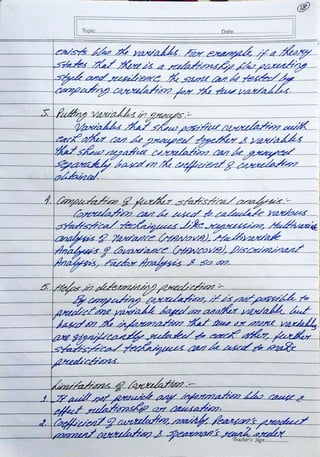 Topic
Date
exists b/w the variables. For example, if a theory
states that there is a relationship b/w parenting
style and resilience the same can be tested by
computing correlation for the two variables.
3. Putting variables in groups:-
Variables that show positive correlation with
each other can be grouped together & variables
that show negative correlation can be grouped
separately based on the coefficient of correlation
obtained.
4. Computation of further statistical analysis:-
Correlation can be used to calculate various
statistical techniques like regression, Multivariate
analysis of variance (MANOVA), Multivariate
Analysis of Covariance (MANCOVA), Discriminant
Analysis, Factor Analysis & so on.
5. Helps in determining prediction:-
By computing correlation, it is not possible to
predict one variable based on another variable, but
based on the information that two or more variables
are significantly related to each other, further
statistical techniques can be used to make
predictions.
Limitations of Correlation:-
1. It will not provide any information b/w cause &
effect relationship or causation.
2. Coefficient of correlation, mainly Pearson's product
moment correlation & Spearman's rank order
Teacher's Sign